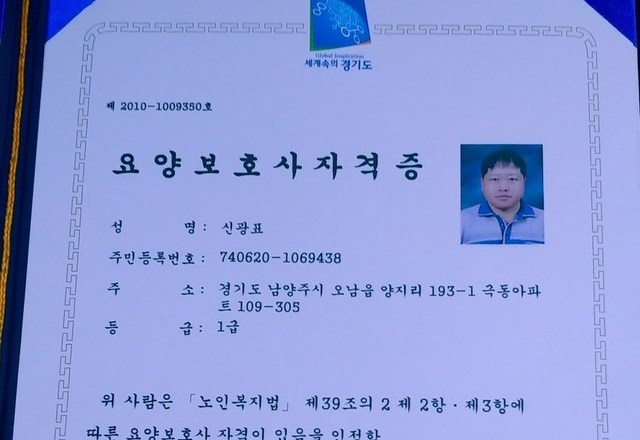 Global Inspiration
세계속의 경기도
제 2010-1009350호
요양보호사자격증
성 명 : 신광표
주민등록번호 : 740620-1069438
주 소 : 경기도 남양주시 오남읍 양지리 193-1 극동아파
트 109-305
등 급 : 1급
위 사람은 「노인복지법」 제39조의 2 제 2항·제3항에
따른 요양보호사 자격이 있음을 인정함